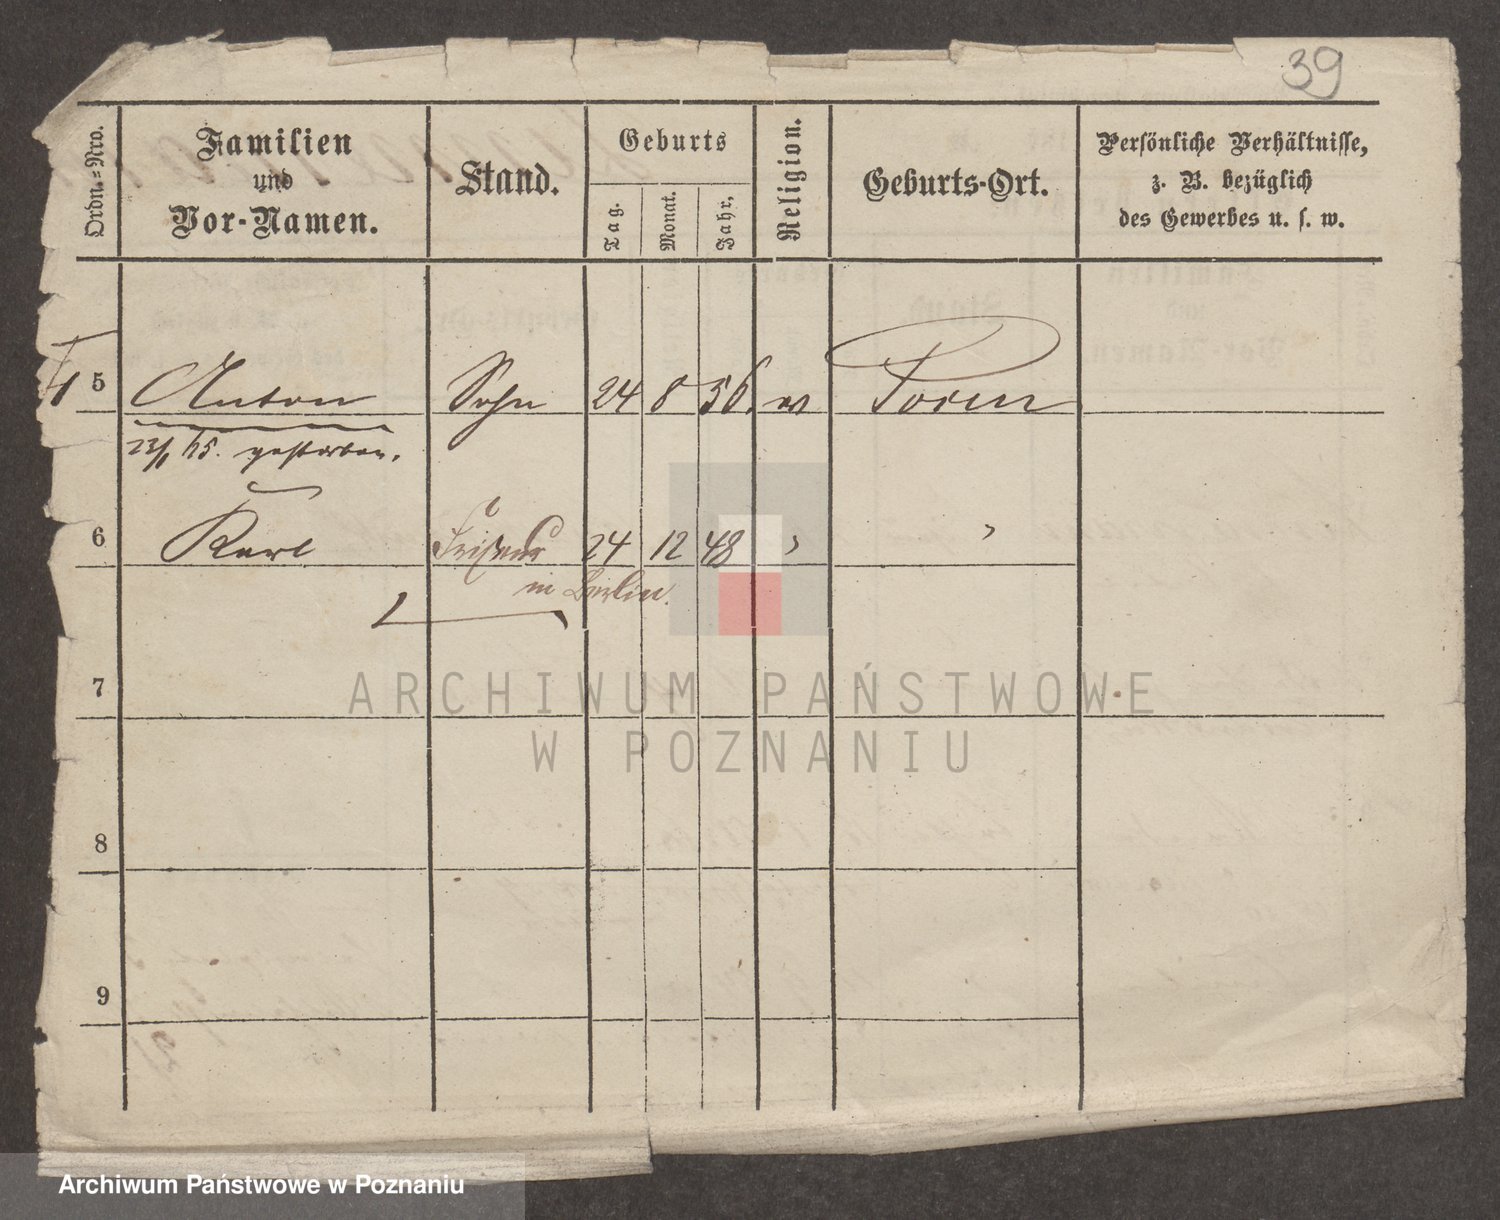 39
Ordn.=Nro.
Familien
und
Vor-Namen.
Stand.
Geburts
Tag.
Monat.
Jahr.
Religion.
Geburts-Ort.
Persönliche Verhältnisse,
z. B. bezüglich
des Gewerbes u. s. w.
5 Anton Sohn 24 8 56. Posen
gestorben.
6 Karl Friseur 24 12 48 " "
in Berlin.
7
ARCHIWUM PAŃSTWOWE
W POZNANIU
8
9
Archiwum Państwowe w Poznaniu